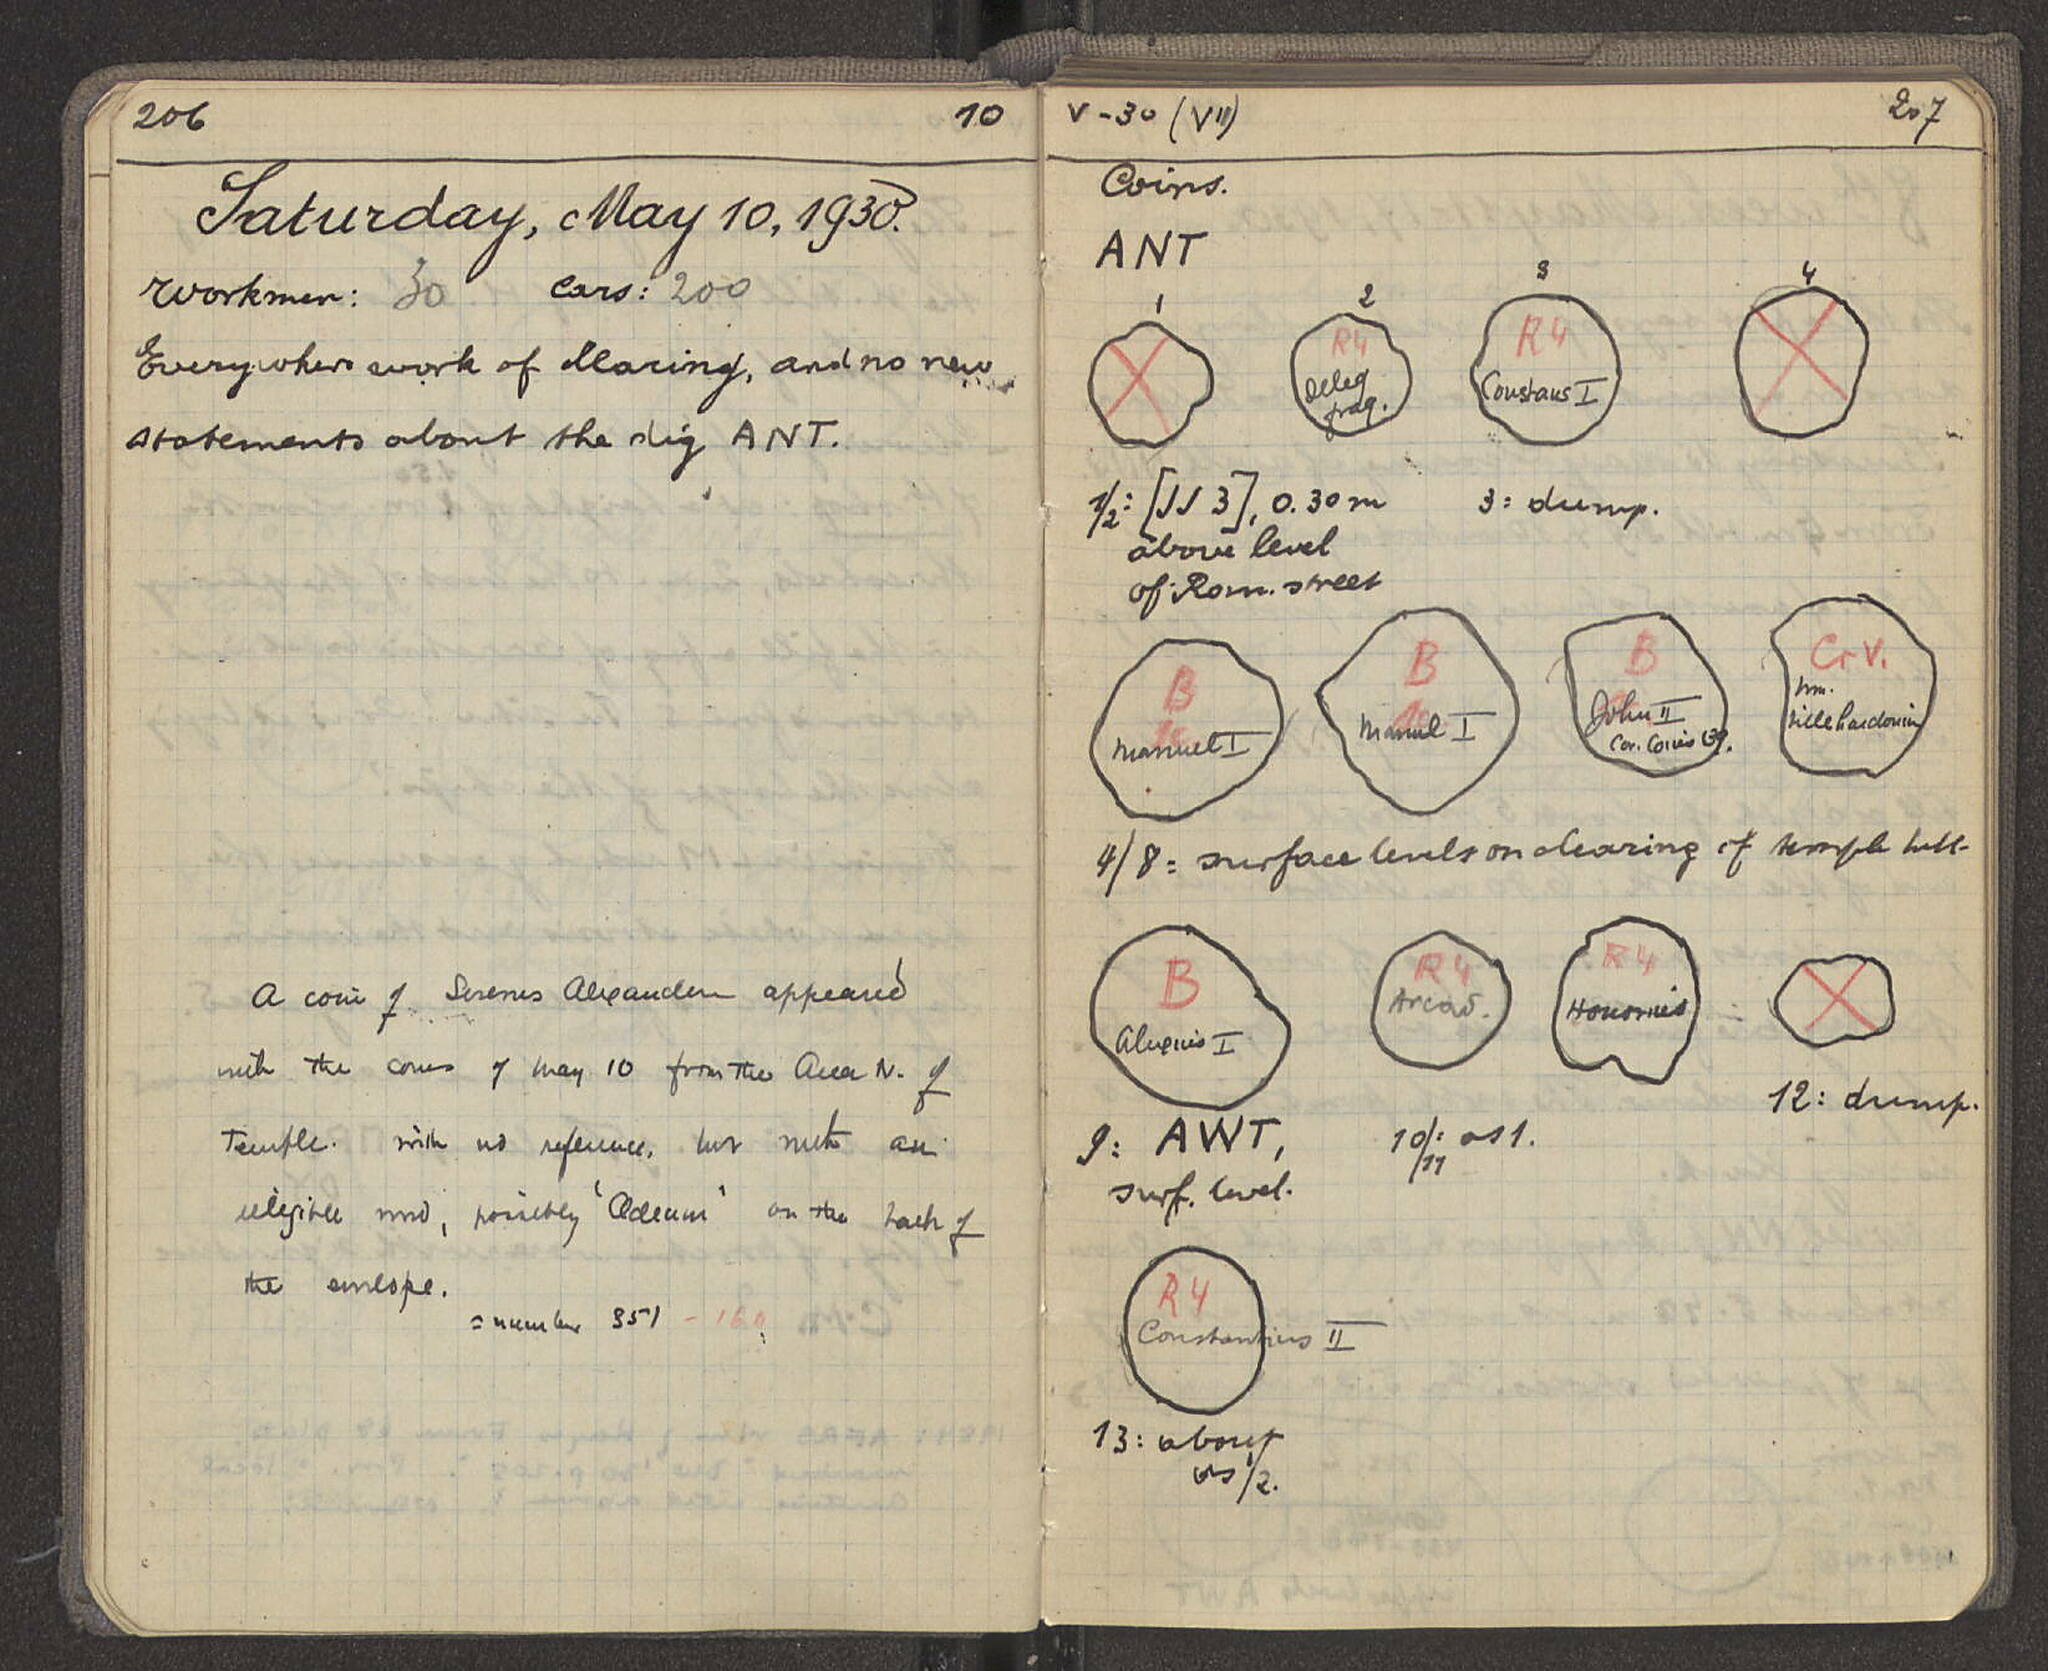 206 10
Saturday, May 10, 1930.
Workmen: 30 Cars: 200
Everywhere work of clearing, and no new
statements about the dig ANT.
A coin of Severus Alexander appeared
with the coins of May 10 from the Area N. of
Temple. with no reference, but with an
illegible word, possibly 'Odeum' on the back of
the envelope.
= number 351 - 160
V-30 (VII) 207
Coins.
ANT
1 2 3 4
R4
R4
Deleg
frag.
Constans I
1/2: [SS 3], 0.30m
above level
of Rom. street
3: dump.
B
B
B
Cr V.
Manuel I
Manuel I
John II
Villehardouin
4/8: surface levels on clearing of temple hill-
B
R4
R4
Alexius I
Arcad.
Honorius
12: dump.
9: AWT,
surf. level.
10/11: as 1.
R4
Constantius II
13: about
as 1/2.